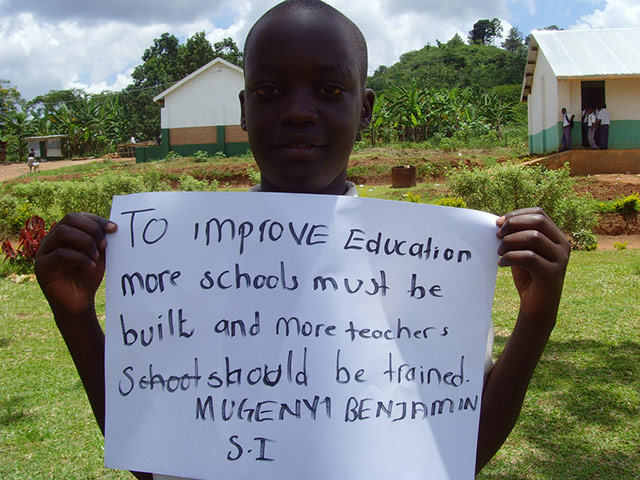 TO IMPROVE Education
more schools must be
built and more teachers
School should be trained.
MUGENYI BENJAMIN
S.I